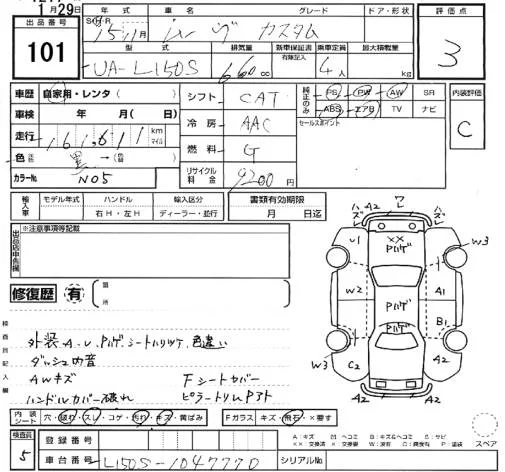 1月29日
出品番号 101
年式 車名 グレード ドア・形状 評価点
S・H・R 15年11月 ムーヴ カスタム
型式 排気量 新車保証書 有限記入 乗車定員 最大積載量
UA-L150S 660cc 4人 kg
3
車歴 自家用・レンタ( )
車検 年 月( 日)
走行 161,611 km マイル
色 元色 黒 → (色替 )
カラーNo. N05
シフト CAT
冷房 AAC
燃料 G
リサイクル料金 9200円
純正のみ PS PW AW SR
ABS エアB TV ナビ
セールスポイント
内装評価 C
輸入車 モデル年式 ハンドル 輸入区分
右H・左H ディーラー・並行
書類有効期限
月 日迄
出品店申告欄 ※注意事項等記載
修復歴 有 箇所
検査員記入欄
外装A-U、Pハゲ シートハリツケ、色違い
ダッシュ内音
AWキズ Fシートカバー
ハンドルカバー破れ ピラートリムPアト
内装シート 穴・破れ・スレ・コゲ・汚れ・キズ・黄ばみ Fガラス キズ・飛石・×要す
検査員 5
登録番号
車台番号 L150S-1047770 シリアルNo.
ハズ A2 ワ ハズ A2
U1 XX Pハゲ W3
W2 Pハゲ A1
Pハゲ B1
W3 C2 A2
A2 A2
A:キズ U:ヘコミ B:キズ&ヘコミ S:サビ
XX:交換済 X:交換要 W:波有 C:腐食有 P:塗装
スペア